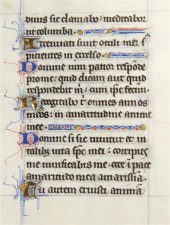 pullus sic clamabo: meditabor
ut columba.
Attenuati sunt oculi mei: s
picientes in excelso.
Domine vim patior respōde
pro me: quid dicam aut quid
respondebit m̄: cum ipse fecim̄
Recogitabo t̄ omnes annos m̄
eos: in amaritudine anime
mee.
Domine si sic vivitur et in
talibus vita sps̄ mei: corripies
me et vivificabis me: ecce ī pace
amaritudo mea amarissīa
Tu autem eruisti animā